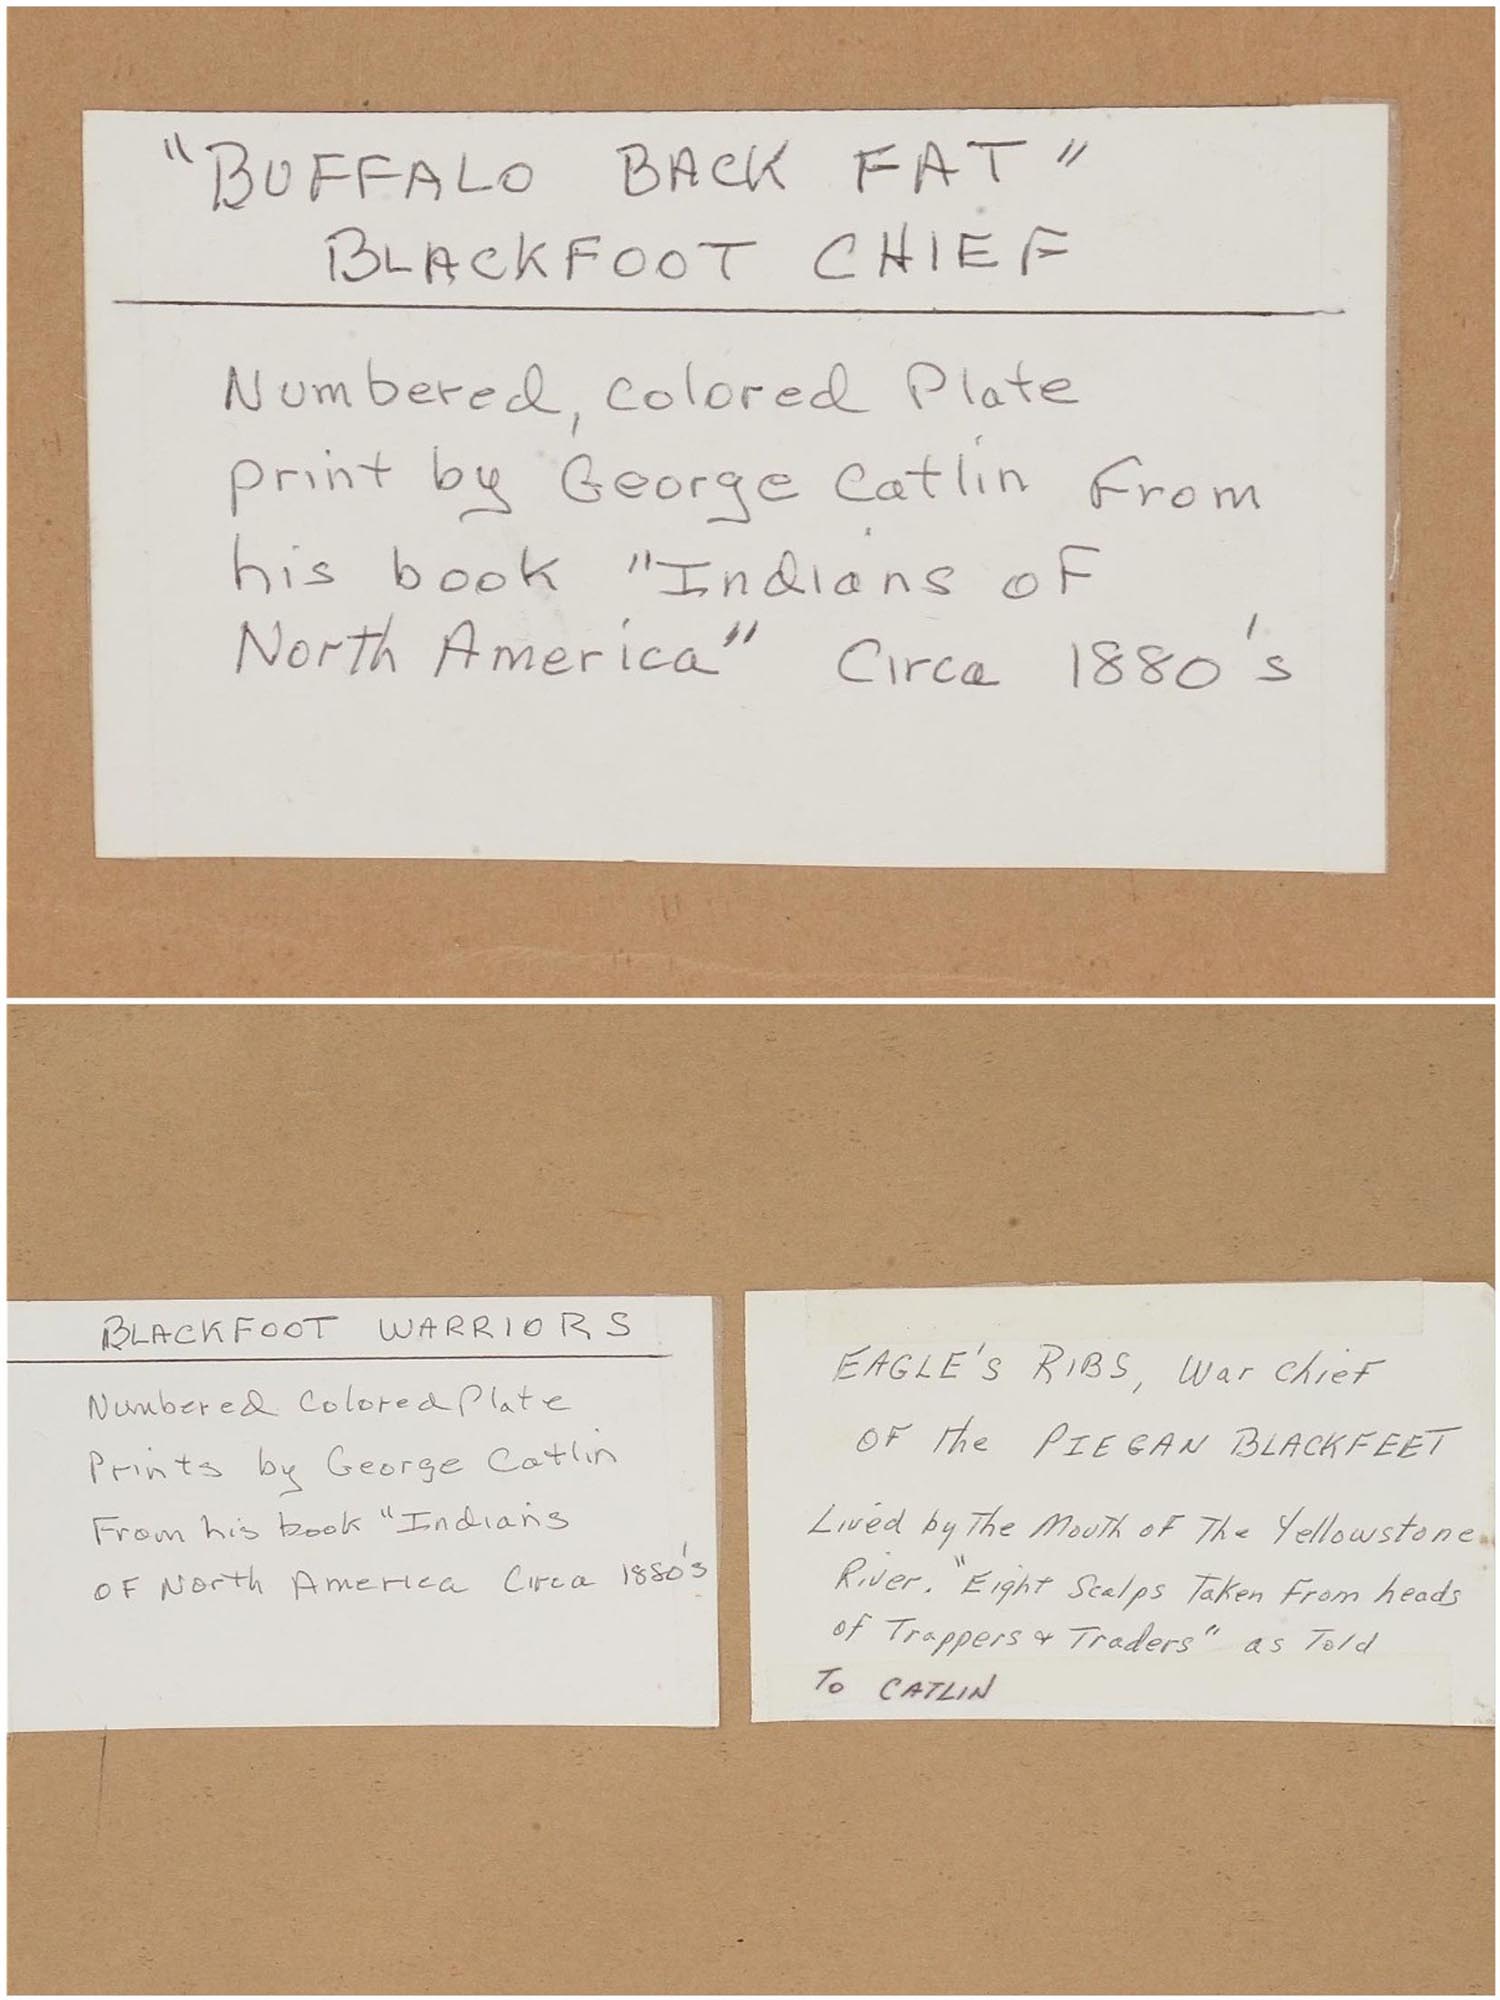 "BUFFALO BACK FAT"
BLACKFOOT CHIEF
Numbered, colored Plate
print by George Catlin From
his book "Indians of
North America" Circa 1880's
BLACKFOOT WARRIORS
Numbered Colored Plate
Prints by George Catlin
From his book "Indians
OF North America Circa 1880's
EAGLE'S RIBS, War Chief
OF the PIEGAN BLACKFEET
Lived by The Mouth of The Yellowstone
River. "Eight Scalps Taken From heads
of Trappers & Traders" as Told
To CATLIN